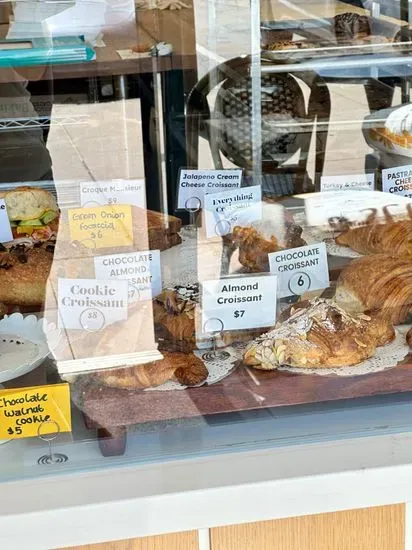 Jalapeno Cream
Cheese Croissant
Croque M
$9
Everything
Croissant
Turkey &
PASTRA
CHEE
CROISS
Green Onion
focaccia
$6
CHOCOLATE
ALMOND
CROISSANT
$7
CHOCOLATE
CROISSANT
6
Cookie
Croissant
$8
Almond
Croissant
$7
Chocolate
walnut
cookie
$5